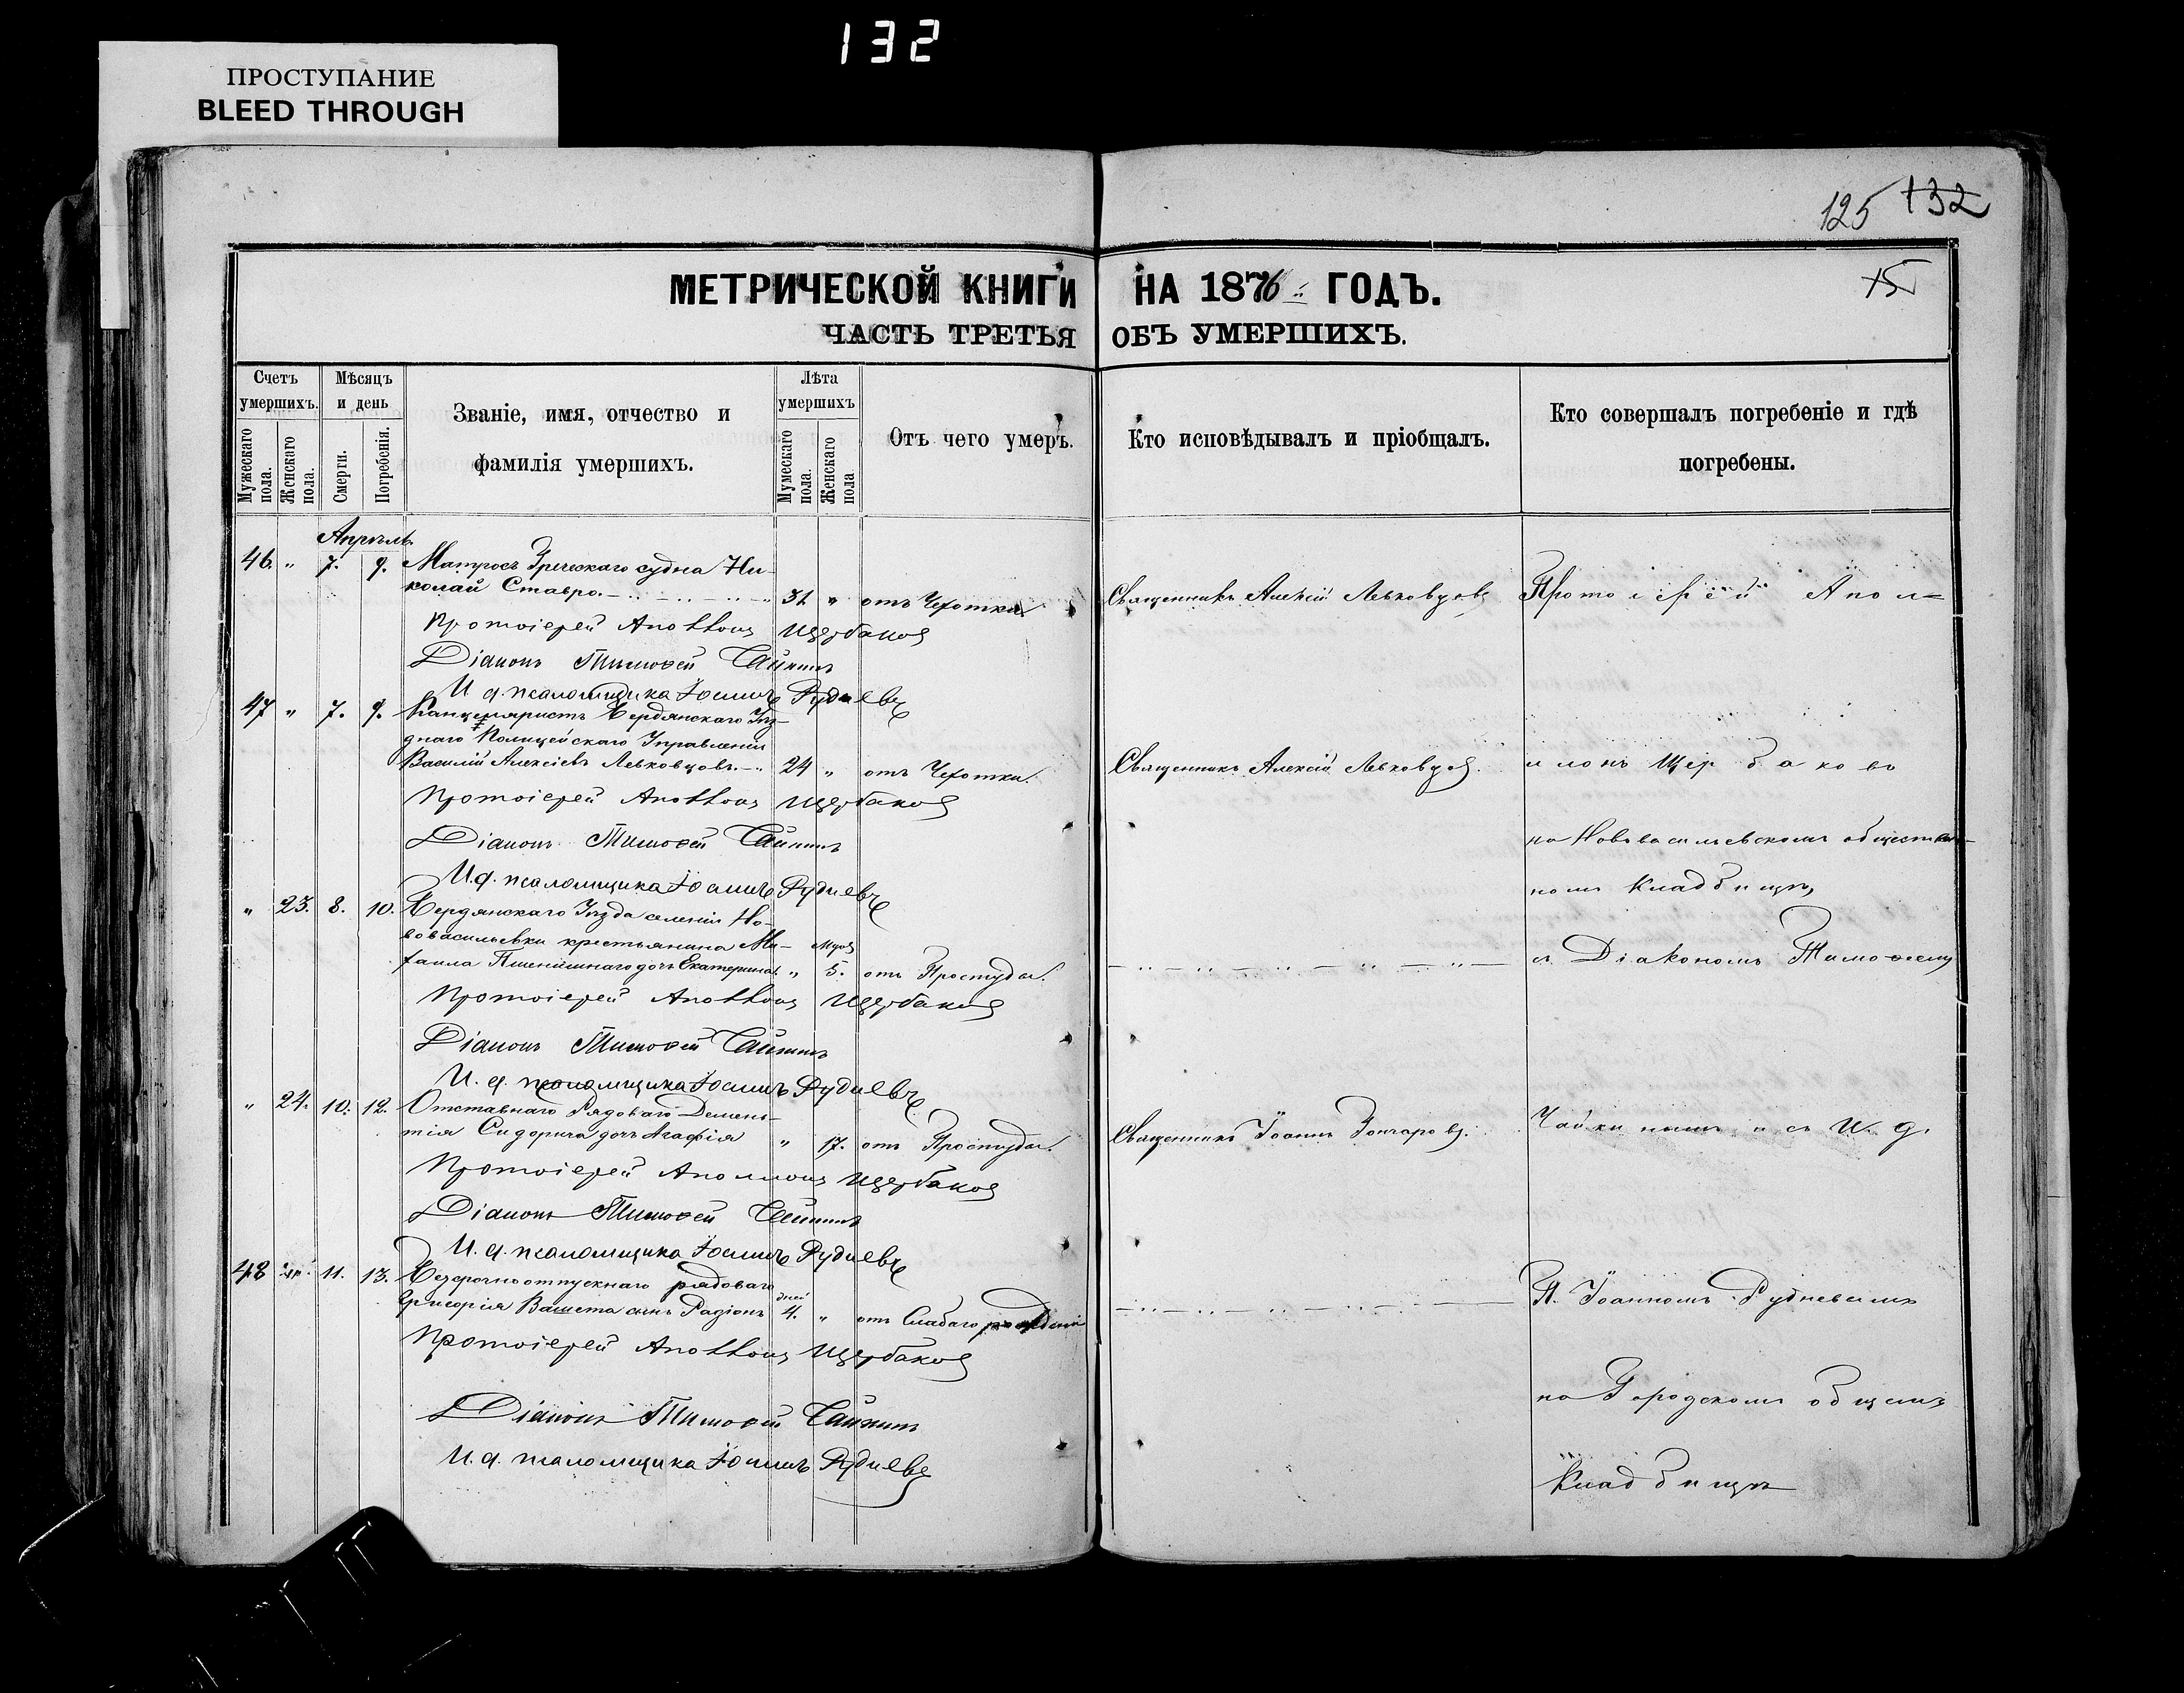 132
ПРОСТУПАНИЕ
BLEED THROUGH
125 132
15
МЕТРИЧЕСКОЙ КНИГИ НА 1876 ГОДЪ.
ЧАСТЬ ТРЕТЬЯ ОБЪ УМЕРШИХЪ.
Счетъ умершихъ.
Мужескаго пола.
Женскаго пола.
Мѣсяцъ и день
Смерти.
Погребенія.
Званіе, имя, отчество и
фамилія умершихъ.
Лѣта умершихъ
Мужескаго пола.
Женскаго пола
Отъ чего умеръ.
Кто исповѣдывалъ и пріобщалъ.
Кто совершалъ погребеніе и гдѣ
погребены.
Апрѣль
46. " 7. 9. Матросъ Греческаго судна Ни-
колай Ставро. 31 " отъ Чахотки Священникъ Алексій Левковцовъ Протоіерей Апол=
Протоіерей Аполлонъ Щербаковъ
Діаконъ Тимофей Чайкинъ
И д. псаломщика Іоаннъ Рудневъ
47 " 7. 9. Канцеляристъ Бердянскаго Уѣз-
днаго Полицейскаго Управленія
Василій Алексіевъ Левковцовъ. 24 " отъ Чахотки. Священникъ Алексій Левковцовъ. лонъ Щербаковъ
Протоіерей Аполлонъ Щербаковъ
Діаконъ Тимофей Чайкинъ
на Нововасильевскомъ обществен-
И.д. псаломщика Іоаннъ Рудневъ
номъ кладбищѣ,
" 23. 8. 10. Бердянскаго Уѣзда селенія Но-
вовасильевки крестьянина Ми-
хаила Пшенишнаго дочь Екатерина " 5. отъ Простуды. съ Діакономъ Тимофеемъ
Протоіерей Аполлонъ Щербаковъ
Діаконъ Тимофей Чайкинъ
И. д. псаломщика Іоаннъ Рудневъ
" 24. 10. 12. Отставнаго Рядоваго Демен-
тія Сидорича дочь Агафія " 17. отъ Простуды. Священникъ Іоаннъ Гончаровъ. Чайкинымъ и съ И. д.
Протоіерей Аполлонъ Щербаковъ
Діаконъ Тимофей Чайкинъ
И. д. псаломщика Іоаннъ Рудневъ
48 11. 13. Безсрочноотпускнаго рядоваго
Григорія сынъ Радіонъ дней 4. " отъ Слабаго рожденія П. Іоанномъ Рудневымъ
Протоіерей Аполлонъ Щербаковъ
Діаконъ Тимофей Чайкинъ
на Городскомъ общемъ
И. д. псаломщика Іоаннъ Рудневъ
Кладбищѣ